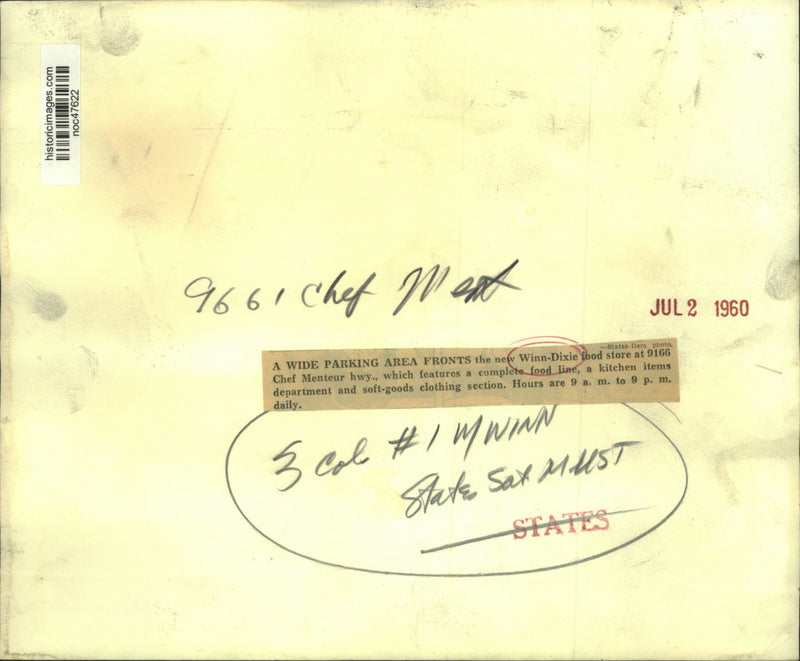 historicimages.com
noc47622
9661 Chef Ment
JUL 2 1960
—States-Item photo.
A WIDE PARKING AREA FRONTS the new Winn-Dixie food store at 9166
Chef Menteur hwy., which features a complete food line, a kitchen items
department and soft-goods clothing section. Hours are 9 a. m. to 9 p. m.
daily.
3 Col #1 WINN
States Sat MUST
STATES